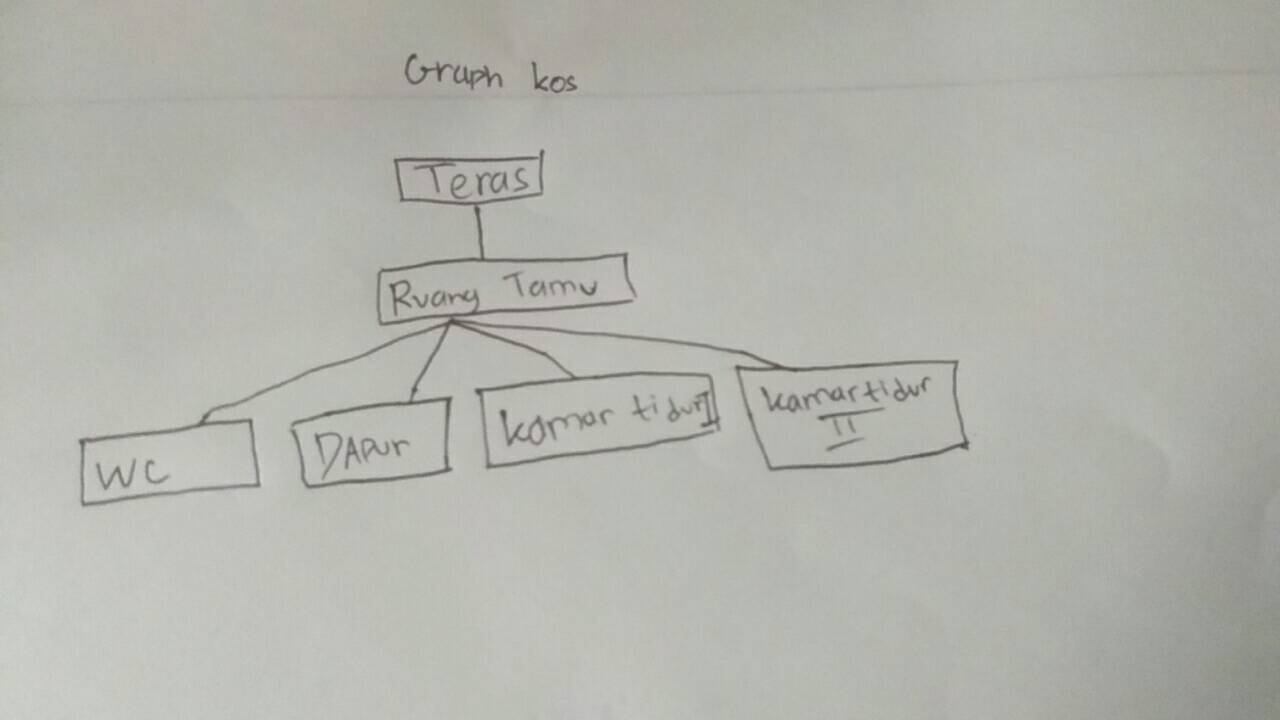 Graph kos
Teras
Ruang Tamu
WC
DAPUR
Kamar tidur I
kamar tidur
II